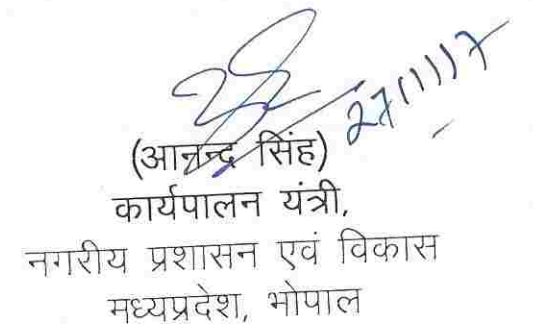 27/11/17
(आनन्द सिंह)
कार्यपालन यंत्री,
नगरीय प्रशासन एवं विकास
मध्यप्रदेश, भोपाल